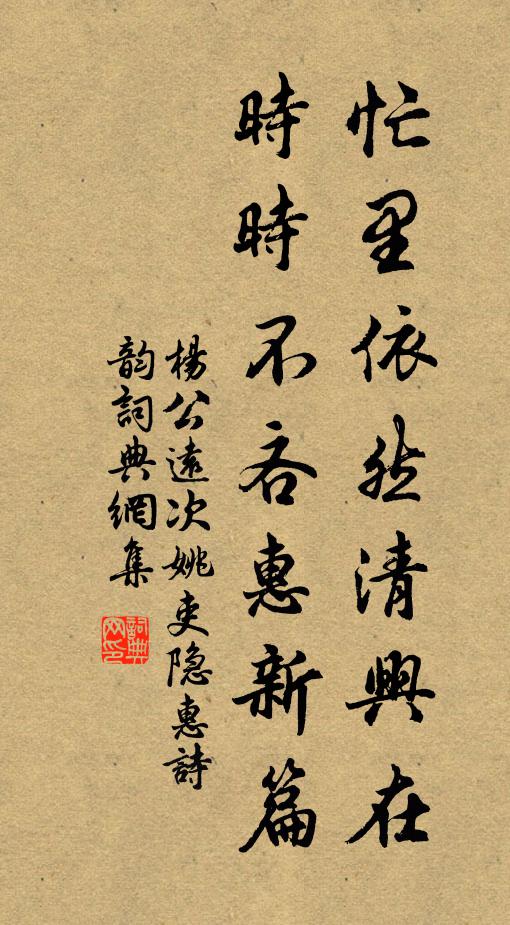 忙里依然清興在
時時不吝惠新篇
楊公遠次姚吏隐惠詩
韵詞典網集
詞典網印